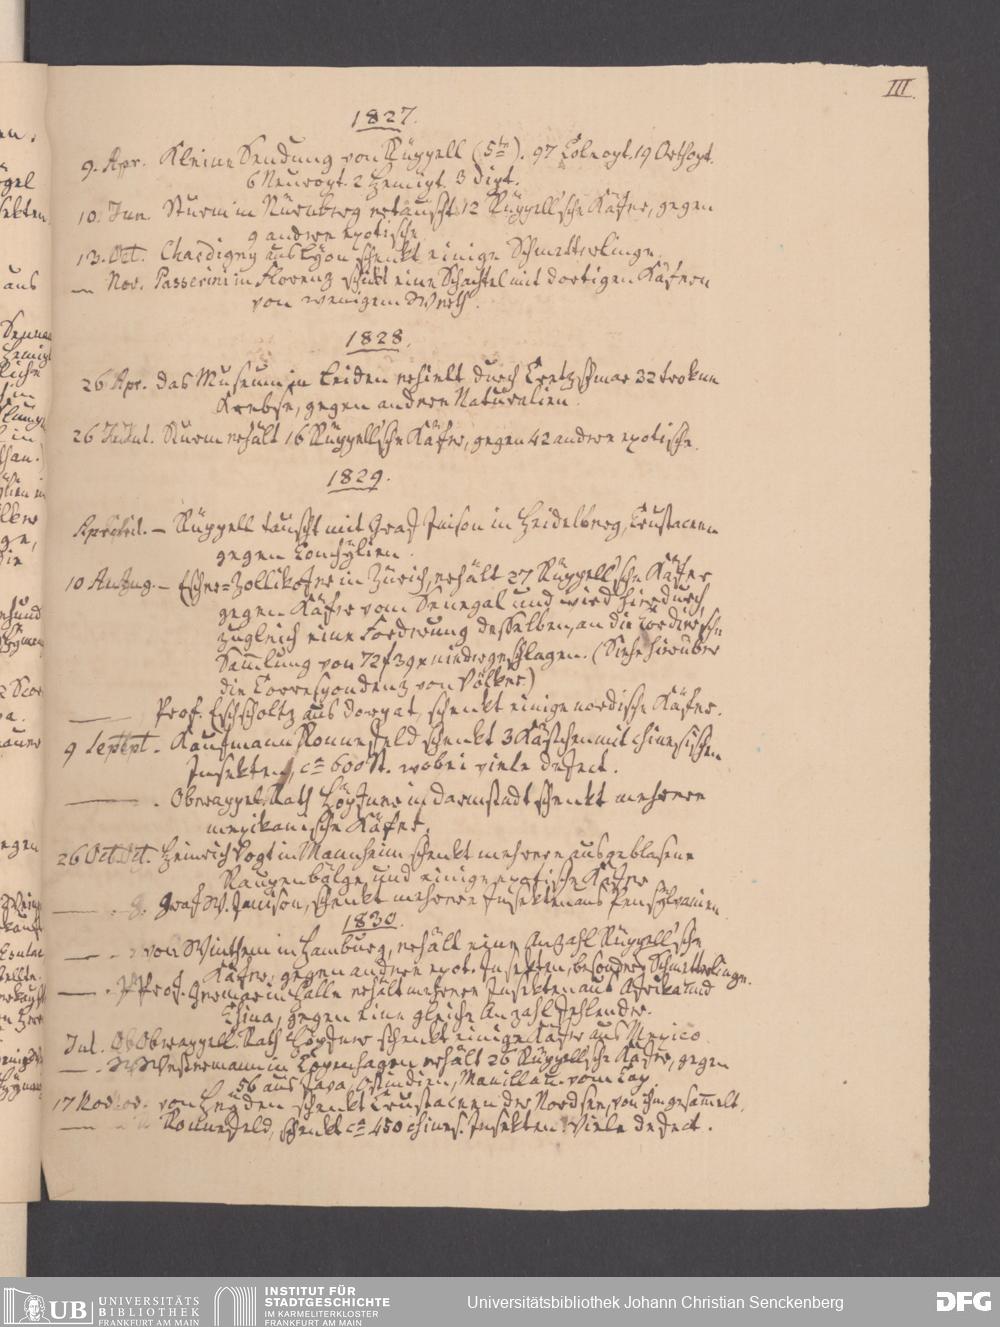 III.
1827.
9. Apr. Kleine Sendung von Rüppell (5te). 97 Coleopt. 19 Orthopt.
6 Neuropt. 2 Hemipt. 3 Dipt.
10. Jun. Sturm in Nürnberg ertauscht 12 Rüppell'sche Käfer, gegen
9 andere exotische
13. Oct. Chardigny aus Lyon schenkt einige Schmetterlinge.
— Nov. Passerini in Florenz schickt eine Schachtel mit dortigen Käfern
von wenigem Werth.
1828.
26 Apr. das Museum in Leiden erhielt durch Cretzschmar 32 trokne
Krebse, gegen andere Naturalien.
26 Jul. Sturm erhält 16 Rüppell'sche Käfer, gegen 42 andere exotische.
1829.
April. — Rüppell tauscht mit Graf Jenison in Heidelberg, Crustaceen
gegen Conchÿlien.
10 Aug. — Escher-Zollikofer in Zürich, erhält 27 Rüppell'sche Käfer
gegen Käfer vom Senegal und wird hierdurch
zugleich eine Forderung desselben, an die
Sammlung von 72 f 39 x niedergeschlagen. (Siehe hierüber
die Correspondenz von Völker.)
— Prof. Eschscholtz aus Dorpat, schenkt einige nordische Käfer.
9 Sept. Kaufmann Ronnefeld schenkt 3 Kästchen mit chinesischen
Insekten, ca 600 St. wobei viele defect.
— . Oberappel. Rath Höpfner in Darmstadt schenkt mehrere
mexikanische Käfer.
26 Oct. Heinrich Vogt in Mannheim schenkt mehrere ausgeblasene
Raupenbälge, und einige exotische Käfer
— . Graf W. Jenison, schenkt mehrere Insekten aus Pensÿlvanien.
1830.
— . von Winthem in Hamburg, erhält eine Anzahl Rüppell'sche
Käfer, gegen andere exot. Insekten, besonders Schmetterlinge.
— . Prof. Germar in Halle erhält mehrere Insekten aus Afrika und
China, gegen eine gleiche Anzahl fehlender.
Jul. Oberappell. Rath Höpfner schenkt einige Käfer aus Mexico.
— . Westermann in Copenhagen erhält 26 Rüppellsche Käfer, gegen
56 aus Java, Ostindien, Manilla u. vom Cap.
17 Nov. von Heÿden schenkt Crustaceen der Nordsee, von ihm gesammelt.
— Ronnefeld, schenkt ca 450 chines. Insekten. Viele defect.
UB UNIVERSITÄTS
BIBLIOTHEK
FRANKFURT AM MAIN
INSTITUT FÜR
STADTGESCHICHTE
IM KARMELITERKLOSTER
FRANKFURT AM MAIN
Universitätsbibliothek Johann Christian Senckenberg
DFG